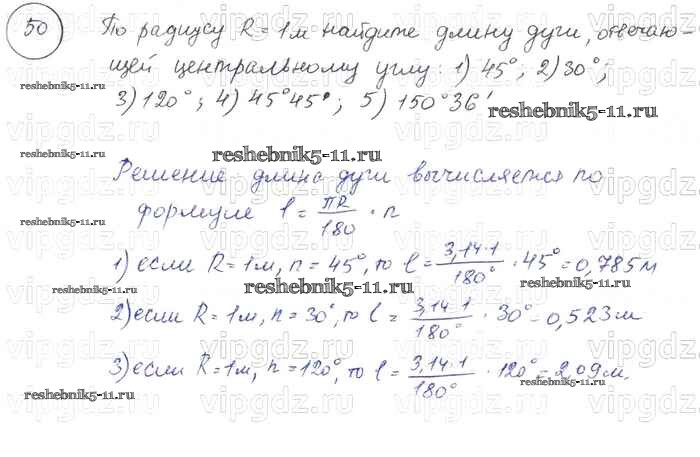 50
По радиусу R = 1м найдите длину дуги, отвечаю-
щей центральному углу: 1) 45°; 2) 30°;
3) 120°; 4) 45°45'; 5) 150°36'
Решение длина дуги вычисляется по
формуле l = πR/180 · n
1) если R = 1м, n = 45°, то l = 3,14·1/180° · 45° = 0,785м
2) если R = 1м, n = 30°, то l = 3,14·1/180° · 30° = 0,523м
3) если R = 1м, n = 120°, то l = 3,14·1/180° · 120° = 2,09м.
reshebnik5-11.ru
vipgdz.ru